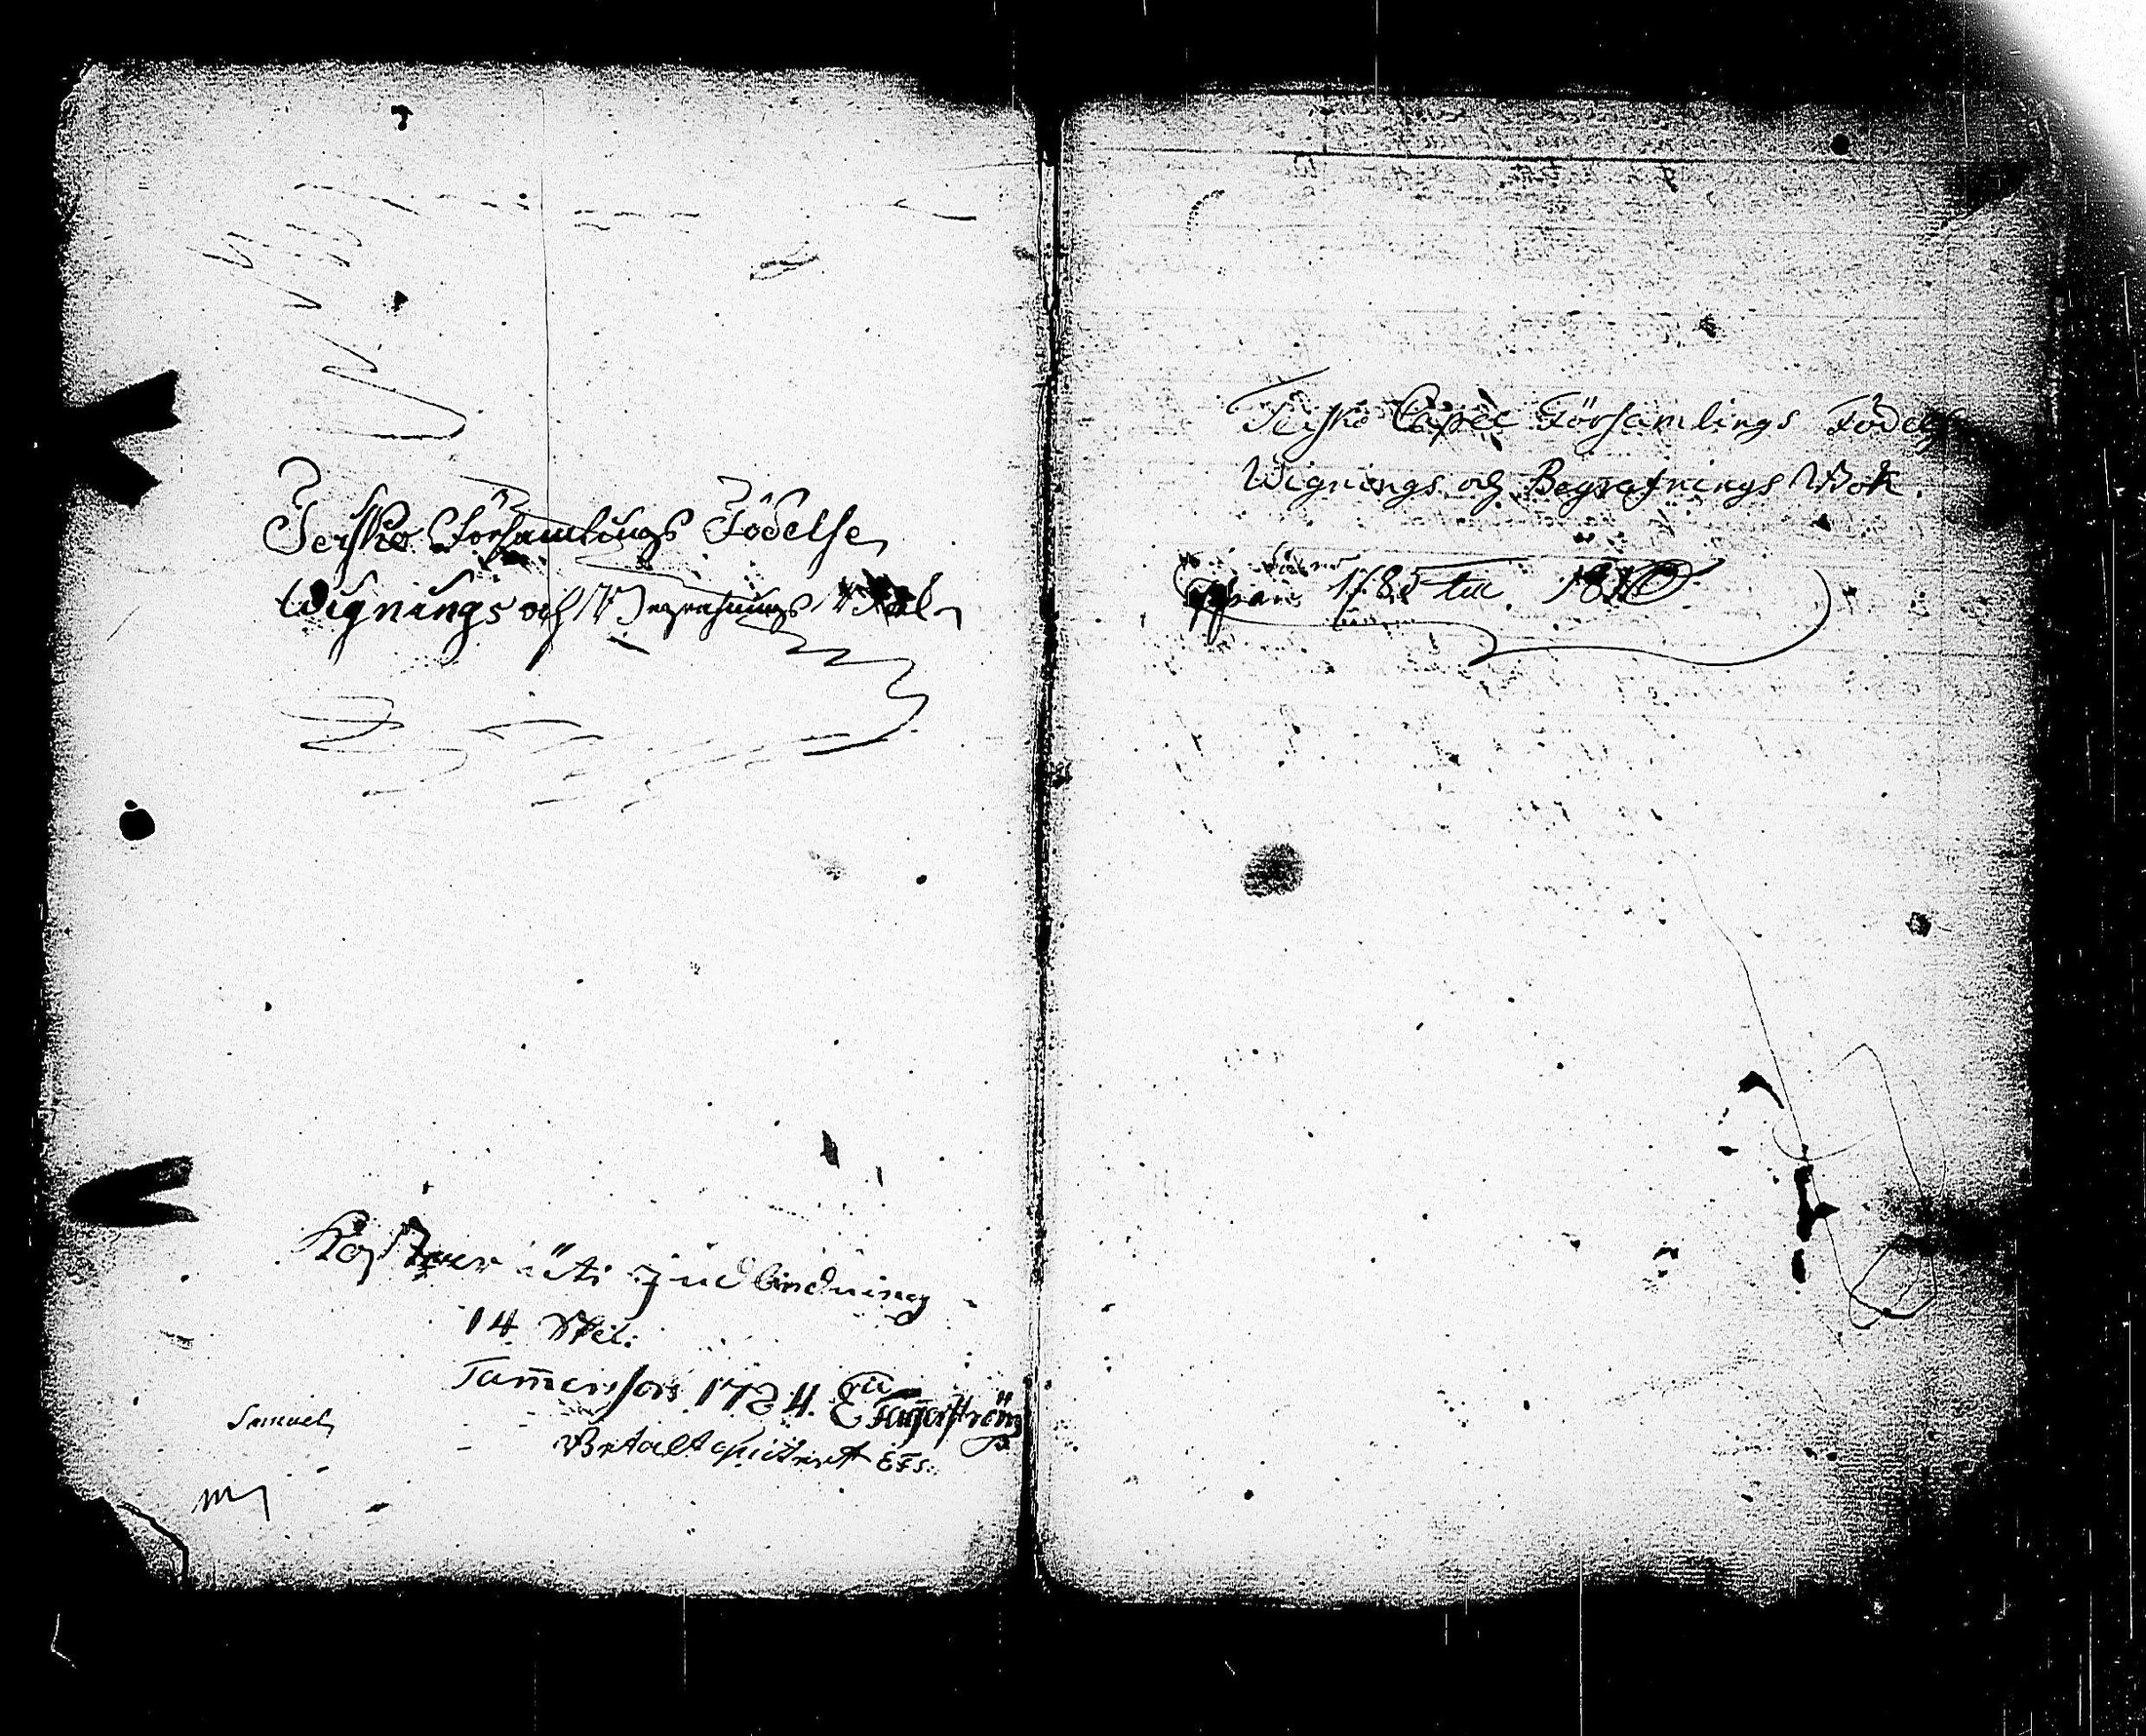 Teisko Församlings Födelse,
Wignings och Begrafnings
Kostner uti Inbindning
14 Skel:
Tam̄erfors 1784.
E Fagerström
Betalt qvitterat EFs:
Samuel
Teisko Capel Församlings Födelse
Wignings och Begrafnings Bok.
ifrån 1785 till 1810